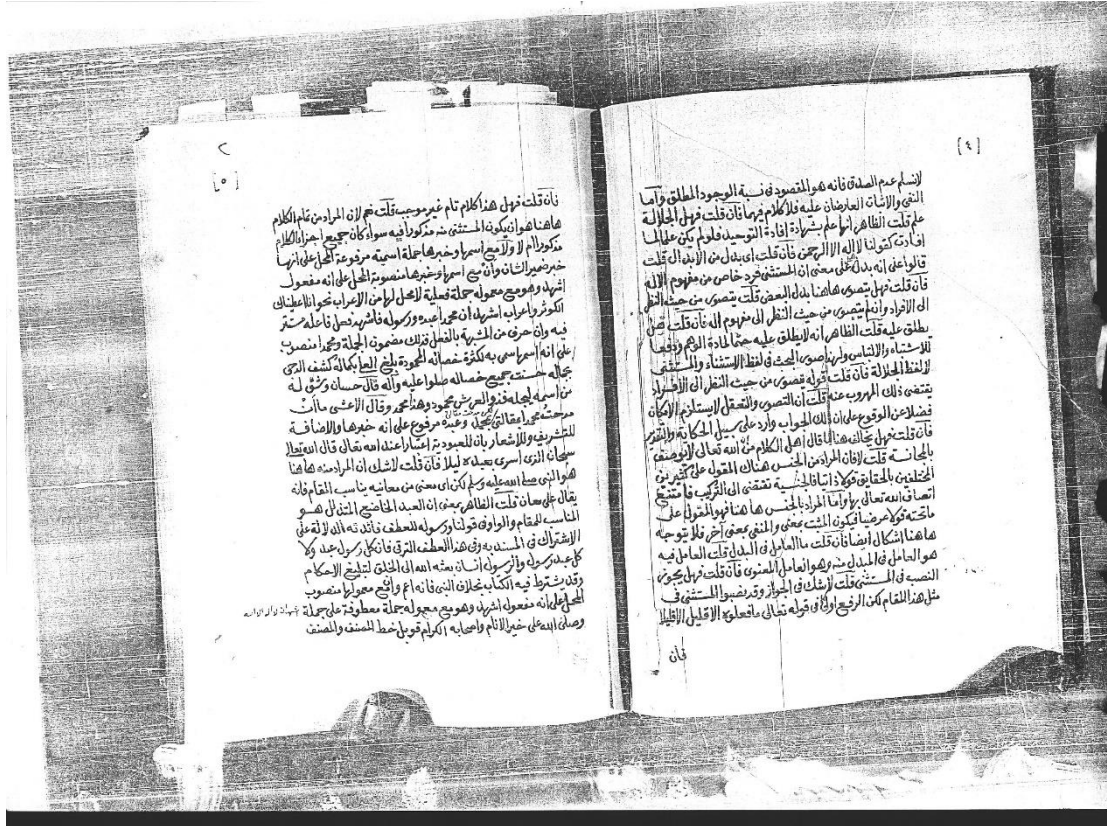 [٤]
لانسلم عدم الصدق فانه هو المقصود فى نسبة الوجود المطلق واما
النفى والاثبات العارضان عليه فلا كلام فيهما فان قلت فهل الجلالة
علم قلت الظاهر انها علم بشهادة افادة التوحيد فلو لم يكن علما لما
افادت كقولنا لا اله الا الرحمن فان قلت اى بدل من الابدال قلت
قالوا على انه بدل على معنى ان المستثنى فرد خاص من مفهوم الاله
فان قلت فهل يتصور هاهنا بدل البعض قلت يتصور من حيث النظر
الى الافراد وانما يتصور من حيث النظر الى مفهوم اله فان قلت هل
يطلق عليه قلت الظاهر انه لا يطلق عليه حتما لمادة الوهم ودفعا
للاشتباه والالتباس ولهذا صوى البحث فى لفظ الاستثناء والمستثنى
لا لفظ الجلالة فان قلت قوله قصوى من حيث النظر الى الافراد
يقتضى ذلك المهروب عنه قلت ان التصور والتعقل لا يستلزم الامكان
فضلا عن الوقوع على ان ذلك الجواب وارد على سبيل الحكاية والتقدير
فان قلت فهل يخالف هذا ما قال اهل الكلام من ان الله تعالى لا يوصف
بالمجانسة قلت لا فان المراد من الجنس هناك المقول على كثيرين
المختلفين بالحقايق قولا ذاتيا فالجنسية تقتضى الى التركيب فامتنع
اتصاف الله تعالى بها واما المراد بالجنس هاهنا فهو المقول على
ماتحته قولا عرضيا فيكون المثبت بمعنى والمنفى بمعنى آخر فلا يتوجه
هاهنا اشكال ايضا فان قلت ما العامل فى البدل قلت العامل فيه
هو العامل فى المبدل منه وهو العامل المعنوى فان قلت فهل يجوز
النصب فى المستثنى قلت لاشك فى الجواز وقد يضبوا المستثنى فى
مثل هذا المقام لكن الرفع اولى فى قوله تعالى ما فعلوه الا قليل الا قليلا
فان
٢
[٥]
فان قلت فهل هذا كلام تام غير موجب قلت نعم لان المراد من تمام الكلام
هاهنا هو ان يكون المستثنى منه مذكورا فيه سواء كان جميع اجزاء الكلام
مذكورا ام لا ولا مع اسمها وخبرها جملة اسمية مرفوعة المحل على انها
خبر ضمير الشان وان مع اسمها وخبرها منصوبة المحل على انه مفعول
اشهد وهو مع معموله جملة فعلية لا محل لها من الاعراب نحو انا اعطيناك
الكوثر واعراب اشهد ان محمدا عبده ورسوله فاشهد فعل فاعله مستتر
فيه وان حرف من المشبهة بالفعل فذلك مضمون الجملة ومحمدا منصوب
على انه اسمها سمى به لكثرة خصاله المحمودة بلغ العلى بكماله كشف الدجى
بجماله حسنت جميع خصاله صلوا عليه وآله قال حسان وشق له
من اسمه ليجله فذو العرش محمود وهذا محمد وقال الاعشى ما ان
مدحت محمدا بمقالتى وعبده مرفوع على انه خبرها والاضافة
للتشريف وللاشعار بان للعبودية اعتبارا عند الله تعالى قال الله تعالى
سبحان الذى اسرى بعبده ليلا فان قلت لاشك ان المراد منه هاهنا
هو النبى صلى الله عليه وسلم لكن اى معنى من معانيه يناسب المقام فانه
يقال على معان قلت الظاهر بمعنى ان العبد الخاضع المتذلل هو
المناسب للمقام والواو فى قولنا ورسوله للعطف فائدته الدلالة على
الاشتراك فى المسند به وفى هذا العطف الترقى فان كل رسول عبد ولا
كل عبد رسول والرسول انسان بعثه الله الى الخلق لتبليغ الاحكام
وقد شترط فيه الكتاب بخلاف النبى فانه اعم وان مع معمولها منصوب
المحل على انه مفعول اشهد وهو مع معموله جملة معطوفة على جملة
وصلى الله على خير الانام واصحابه الكرام قوبل خط المصنف والمصنف